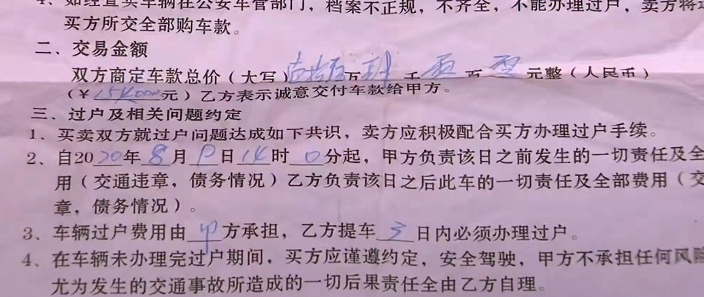 4、如经查实车辆在公安车管部门，档案不正规，不齐全，不能办理过户，卖方将
买方所交全部购车款。
二、交易金额
双方商定车款总价（大写）万 千 百 元整（人民币）
（￥154000元）乙方表示诚意交付车款给甲方。
三、过户及相关问题约定
1、买卖双方就过户问题达成如下共识，卖方应积极配合买方办理过户手续。
2、自2020年8月 日14时0分起，甲方负责该日之前发生的一切责任及全
用（交通违章，债务情况）乙方负责该日之后此车的一切责任及全部费用（交
章，债务情况）。
3、车辆过户费用由甲方承担，乙方提车 日内必须办理过户。
4、在车辆未办理完过户期间，买方应谨遵约定，安全驾驶，甲方不承担任何风险
尤为发生的交通事故所造成的一切后果责任全由乙方自理。